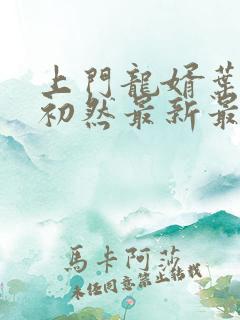 上門龍婿葉
初然最新最
馬卡阿莎
未经同意禁止转载